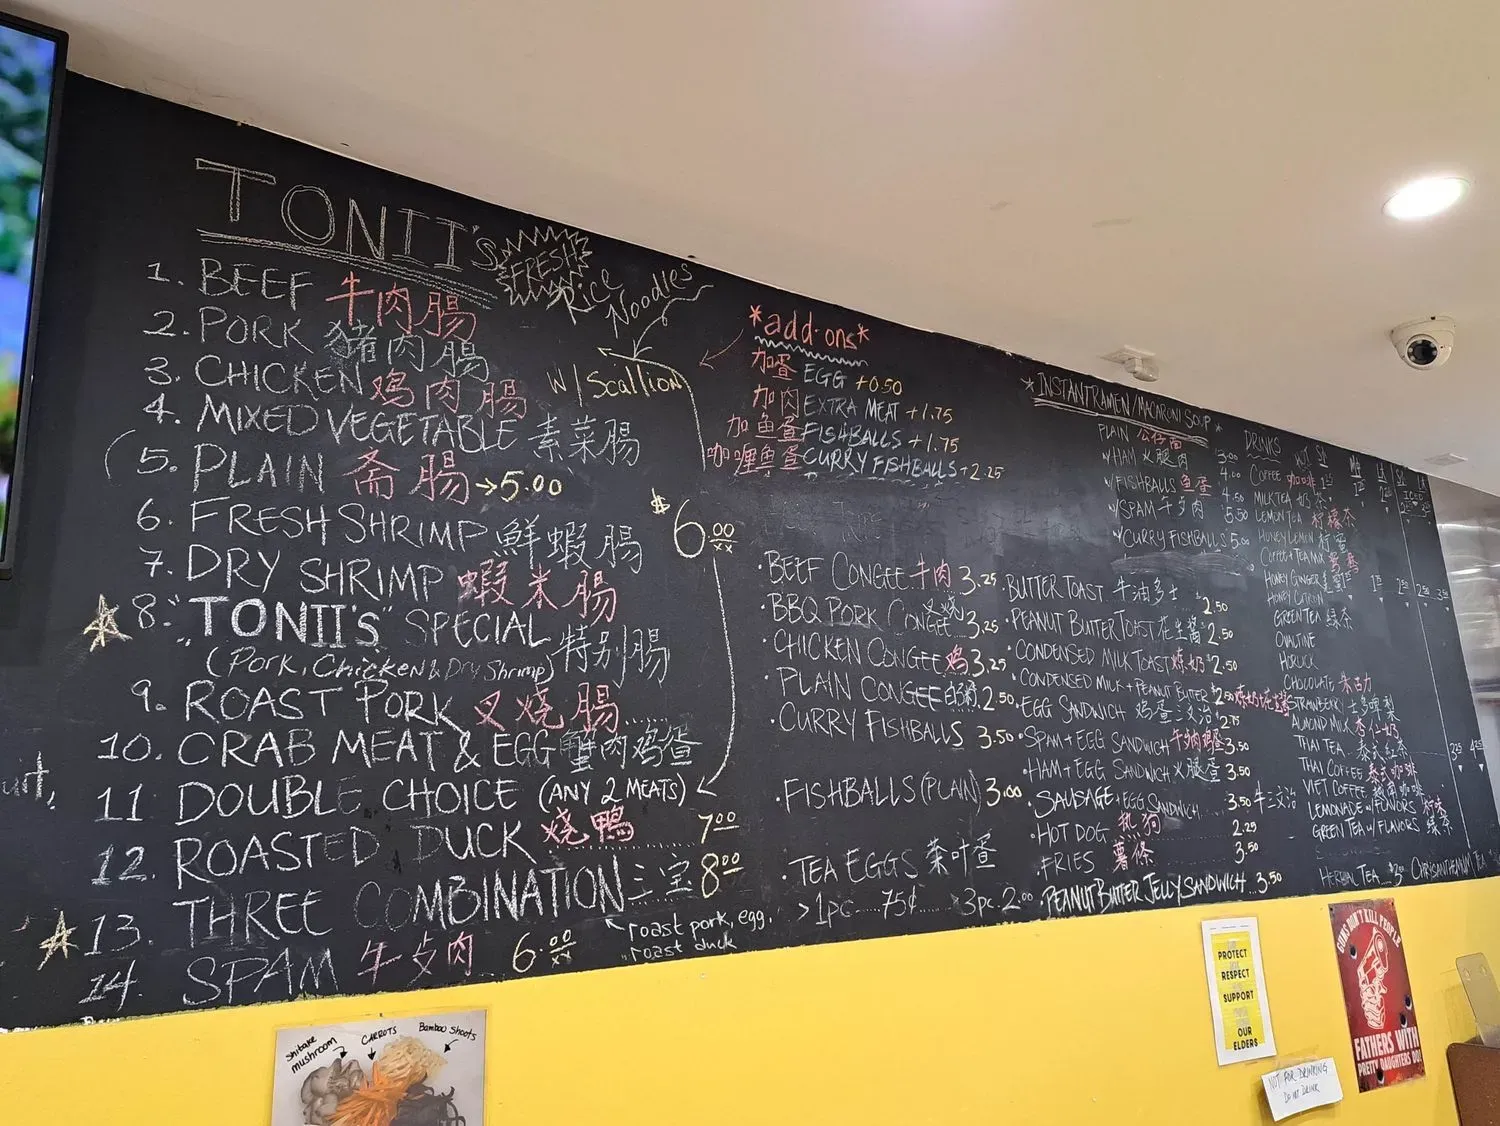 TONII'S FRESH Rice Noodles
1. BEEF 牛肉腸
2. PORK 豬肉腸
3. CHICKEN 鸡肉腸
W/ Scallion
4. MIXED VEGETABLE 素菜腸
5. PLAIN 斋腸 →5.00
6. FRESH SHRIMP 鮮蝦腸
$6.00
7. DRY SHRIMP 蝦米腸
8. "TONII'S" SPECIAL 特别腸
(Pork, Chicken & Dry Shrimp)
9. ROAST PORK 叉燒腸
10. CRAB MEAT & EGG 蟹肉鸡蛋
11 DOUBLE CHOICE (ANY 2 MEATS)
12. ROASTED DUCK 烧鴨 7.00
13. THREE COMBINATION 三宝 8.00
roast pork, egg,
roast duck
14. SPAM 6.00
*add-ons*
加蛋 EGG +0.50
加肉 EXTRA MEAT +1.75
加鱼蛋 FISHBALLS +1.75
咖喱鱼蛋 CURRY FISHBALLS +2.25
·BEEF CONGEE 牛肉 3.25
·BBQ PORK CONGEE 叉烧 3.25
·CHICKEN CONGEE 鸡 3.25
·PLAIN CONGEE 2.50
·CURRY FISHBALLS 3.50
·FISHBALLS (PLAIN) 3.00
·TEA EGGS 茶叶蛋
>1pc.....75¢..... 3pc. 2.00
*INSTANT RAMEN/MACARONI SOUP*
PLAIN 公仔面 3.00
W/HAM 火腿肉 4.00
W/FISHBALLS 鱼蛋 4.50
W/SPAM 5.50
W/CURRY FISHBALLS 5.00
·BUTTER TOAST 牛油多士 2.50
·PEANUT BUTTER TOAST 花生醬 2.50
·CONDENSED MILK TOAST 炼奶 2.50
·CONDENSED MILK + PEANUT BUTTER 2.50
·EGG SANDWICH 鸡蛋三文治 2.75
·SPAM + EGG SANDWICH 3.50
·HAM + EGG SANDWICH 火腿蛋 3.50
·SAUSAGE + EGG SANDWICH 3.50
·HOT DOG 热狗 2.25
·FRIES 薯條 3.50
·PEANUT BUTTER JELLY SANDWICH....3.50
DRINKS
COFFEE 咖啡
MILK TEA 奶茶
LEMON TEA 柠檬茶
HONEY LEMON
COFFEE + TEA MIX
HONEY GINGER
HONEY CITRON
GREEN TEA 绿茶
OVALTINE
HORLICK
CHOCOLATE 朱古力
STRAWBERRY
ALMOND MILK
THAI TEA 泰式红茶
THAI COFFEE 泰式咖啡
VIET COFFEE
LEMONADE W/FLAVORS
GREEN TEA W/FLAVORS 绿茶
HERBAL TEA CHRISANTHEMUM TEA
Shitake mushroom
CARROTS
Bamboo Shoots
PROTECT
RESPECT
SUPPORT
OUR
ELDERS
GUNS DON'T KILL PEOPLE
FATHERS WITH
PRETTY DAUGHTERS DO!
NOT FOR DRINKING
DO NOT DRINK